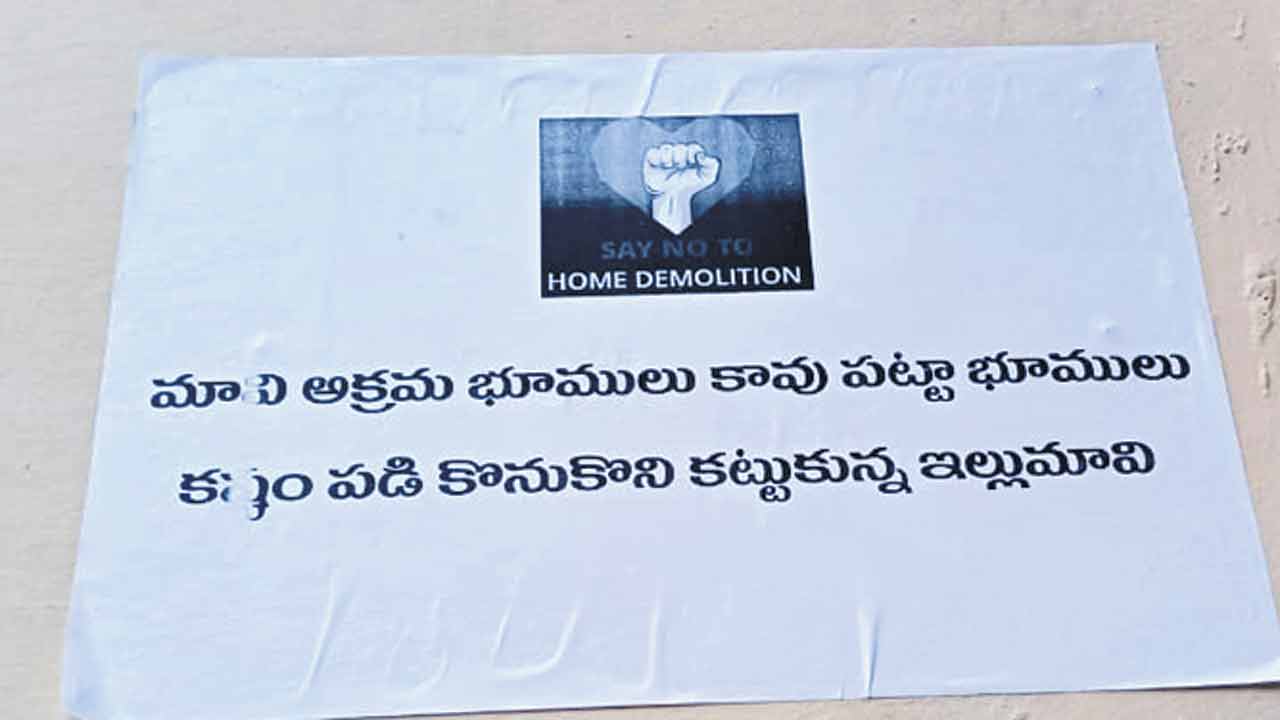 SAY NO TO
HOME DEMOLITION
మావి అక్రమ భూములు కావు పట్టా భూములు
కష్టం పడి కొనుకొని కట్టుకున్న ఇల్లుమావి